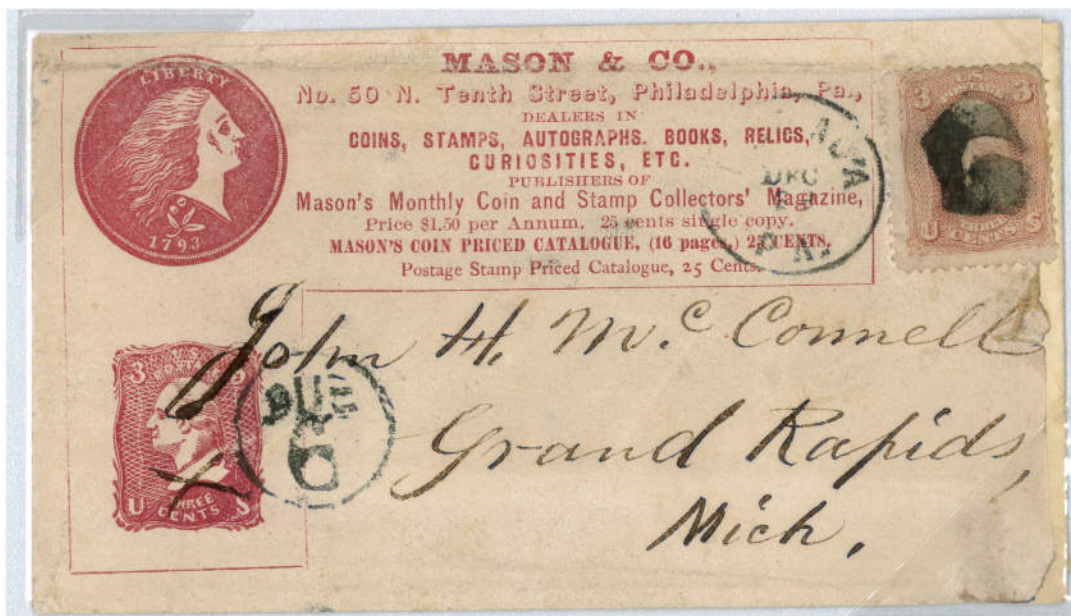 LIBERTY
1793
MASON & CO.,
No. 50 N. Tenth Street, Philadelphia, Pa.,
DEALERS IN
COINS, STAMPS, AUTOGRAPHS. BOOKS, RELICS,
CURIOSITIES, ETC.
PUBLISHERS OF
Mason's Monthly Coin and Stamp Collectors' Magazine,
Price $1.50 per Annum. 25 cents single copy.
MASON'S COIN PRICED CATALOGUE, (16 pages,) 25 CENTS.
Postage Stamp Priced Catalogue, 25 Cents.
DEC
PA.
3 U.S. 3
POSTAGE
U CENTS S
John H. McConnell
Grand Rapids,
Mich.
3 U.S. 3
POSTAGE
U THREE S
CENTS
DUE
6